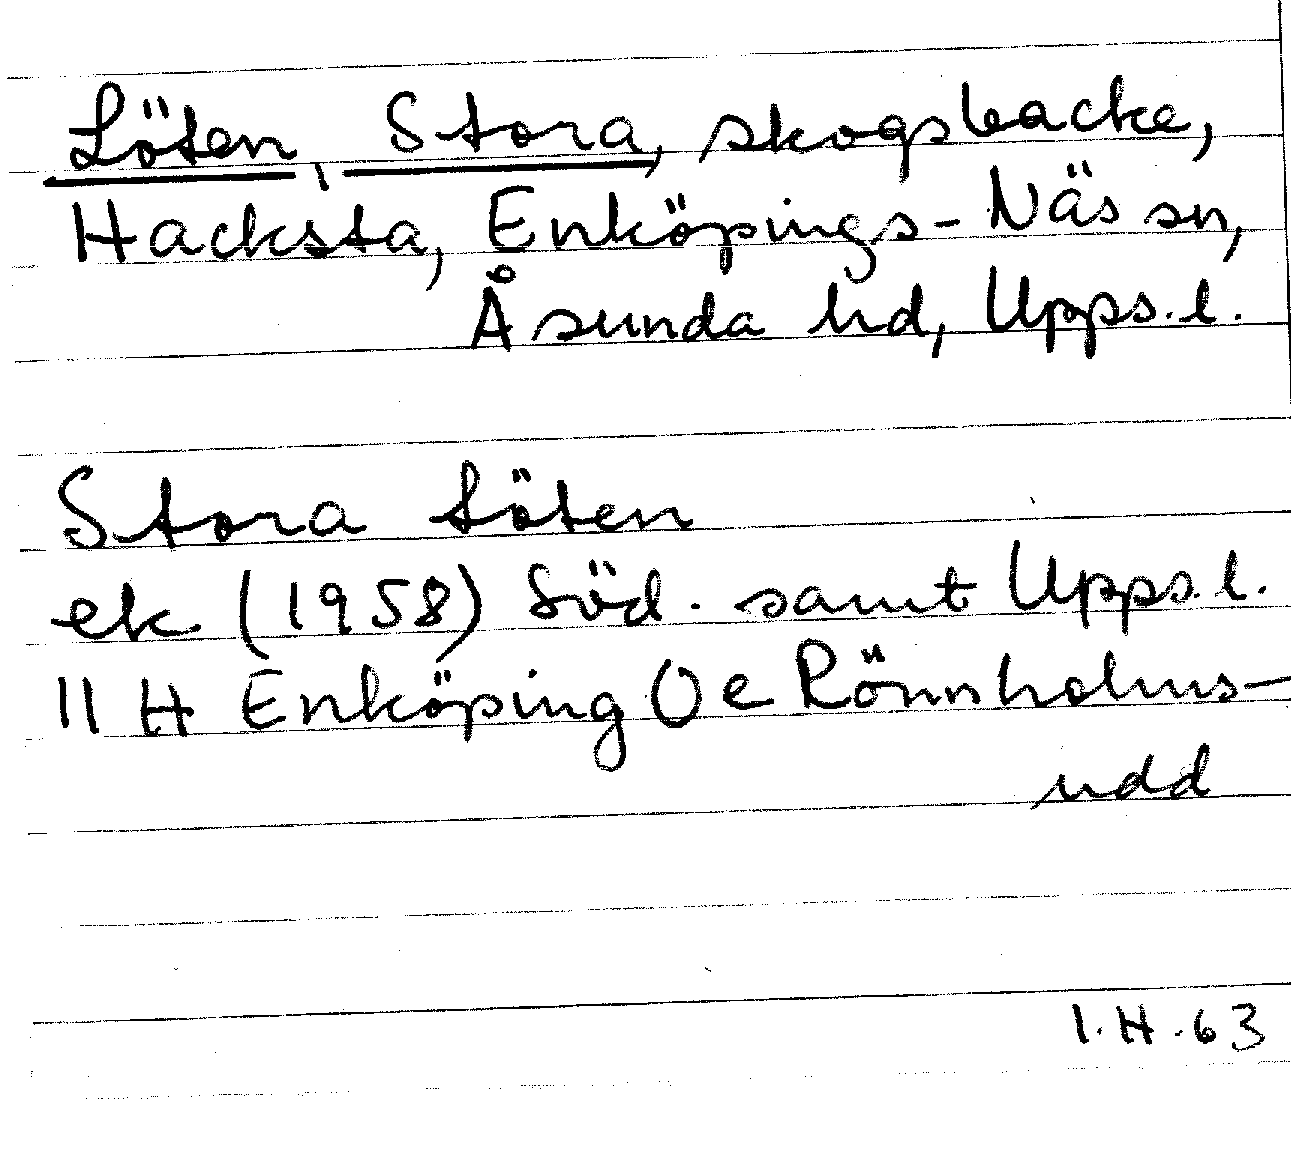 Löten, Stora, skogsbacke,
Hacksta, Enköpings-Näs sn,
Åsunda hd, Upps. l.
Stora Löten
ek (1958) Söd. samt Upps. l.
11 H Enköping O e Rönnholms-
udd
I.H.63